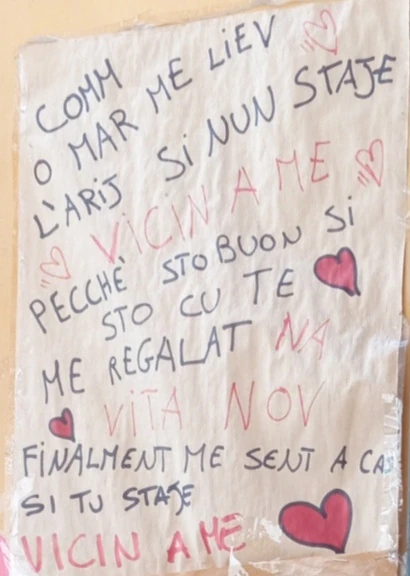 COMM
O MAR ME LiEV
L'ARiJ Si NUN STAJE
ViCiN A ME
PECCHÈ STO BUON Si
STO CU TE
ME REGALAT NA
ViTA NOV
FiNALMENT ME SENT A CAS
Si TU STAJE
VICIN A ME